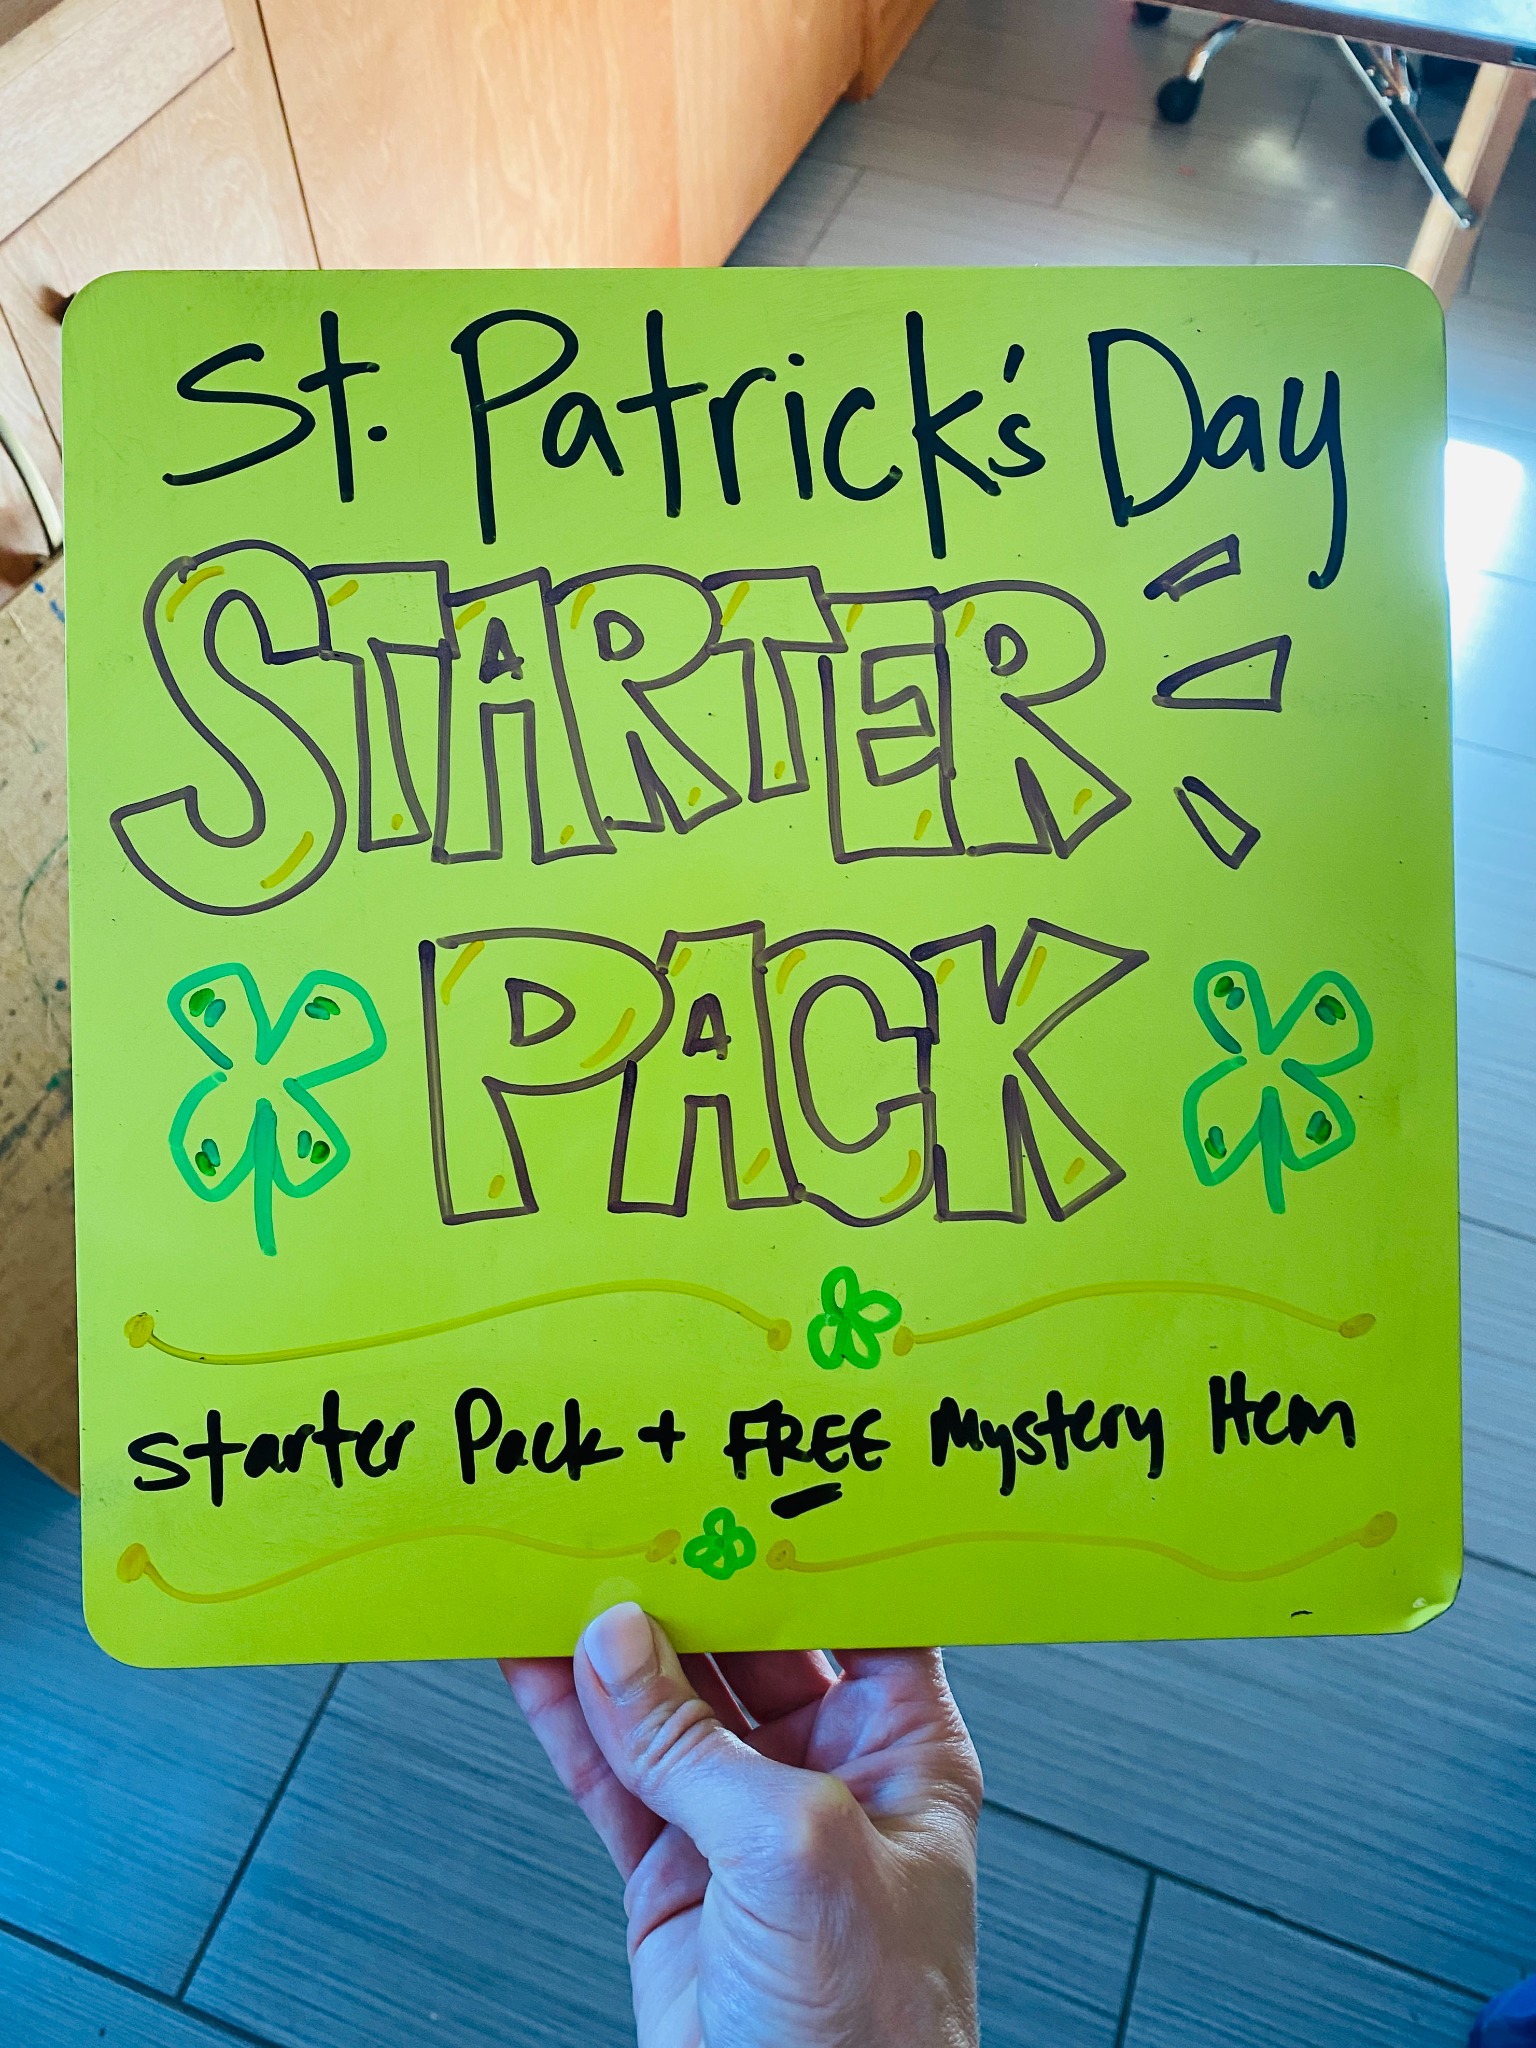 St. Patrick's Day
STARTER
PACK
Starter Pack + FREE Mystery Item